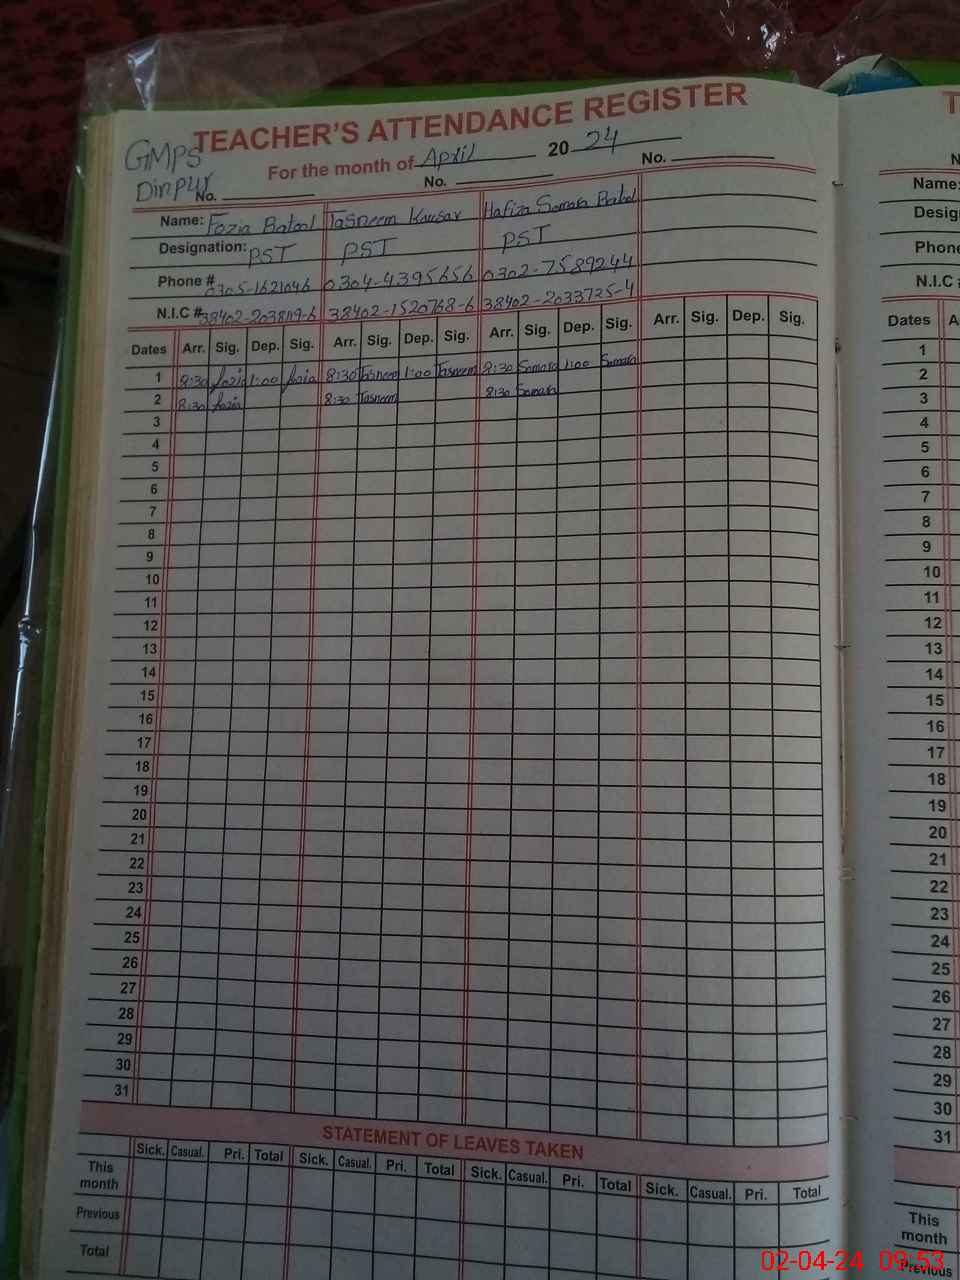 TEACHER'S ATTENDANCE REGISTER
GMPS
Dinpur
For the month of April 2024
No. No. No.
Name: Fozia Batool Tasneem Kausar Hafiza Somara Batol
Designation: PST PST PST
Phone # 0305-1621046 0304-4395656 0302-7589244
N.I.C # 38402-2038119-6 38402-1520768-6 38402-2033725-4
Dates Arr. Sig. Dep. Sig. Arr. Sig. Dep. Sig. Arr. Sig. Dep. Sig. Arr. Sig. Dep. Sig.
1 8:30 fozia 1:00 fozia 8:30 Tasneem 1:00 Tasneem 8:30 Somara 1:00 Somara
2 8:30 fozia 8:30 Tasneem 8:30 Somara
3
4
5
6
7
8
9
10
11
12
13
14
15
16
17
18
19
20
21
22
23
24
25
26
27
28
29
30
31
STATEMENT OF LEAVES TAKEN
Sick. Casual. Pri. Total Sick. Casual. Pri. Total Sick. Casual. Pri. Total Sick. Casual. Pri. Total
This month
Previous
Total
T
Name:
Phone
N.I.C #
Dates
1
2
3
4
5
6
7
8
9
10
11
12
13
14
15
16
17
18
19
20
21
22
23
24
25
26
27
28
29
30
31
This
month
Previous
02-04-24 09:53